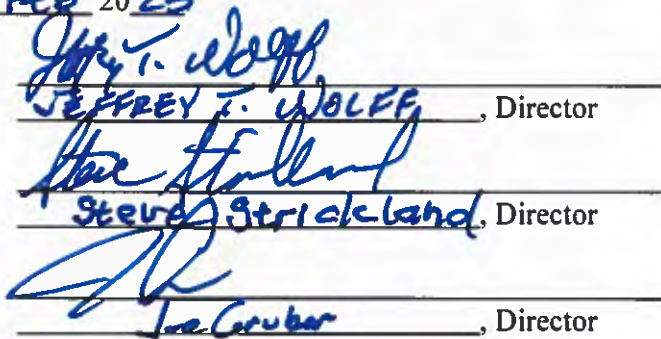 FEB 2025
Jeffrey T. Wolff
JEFFREY T. WOLFF, Director
Steve Strickland
Steve Strickland, Director
Joe Gruber, Director